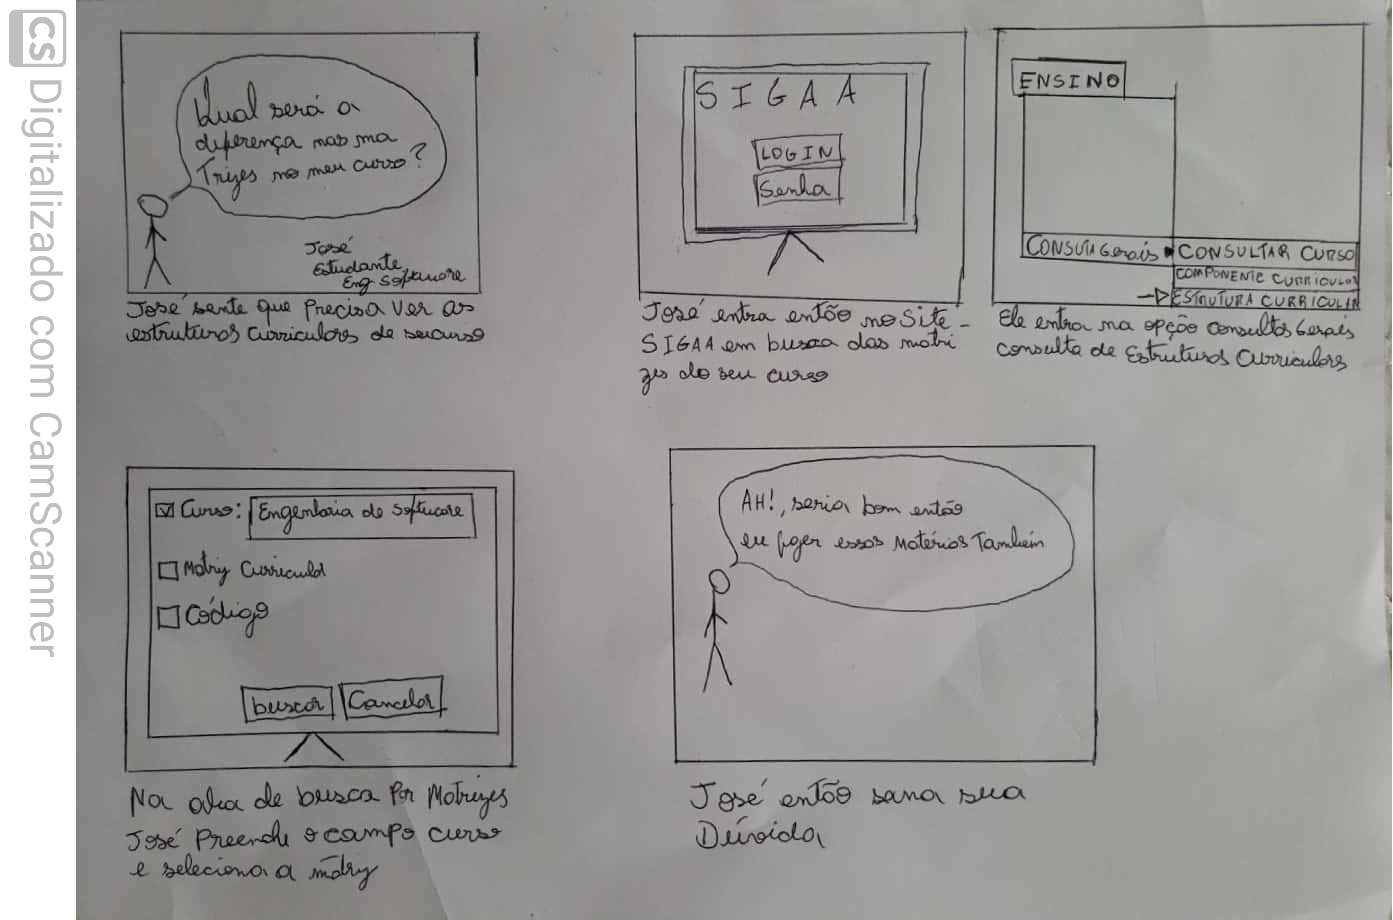 CS Digitalizado com CamScanner
Qual será a
diferença nas ma
Trizes no meu curso?
José
Estudante
Eng Software
José sente que Precisa Ver as
estruturas Curriculares de seu curso
SIGAA
LOGIN
Senha
José entra então no Site
SIGAA em busca das matri
zes do seu curso
ENSINO
CONSUTA Gerais
CONSULTAR CURSO
COMPONENTE CURRICULAR
ESTRUTURA CURRICULAR
Ele entra na opção Consultas Gerais
consulta de Estruturas Curriculares
Curso: Engenharia de Software
Matriz Curricular
Código
buscar Cancelar
Na aba de busca Por Matrizes
José Preenche o campo curso
e seleciona a matriz
AH!, seria bom então
eu fazer essas Matérias Também
José então sana sua
Dúvida